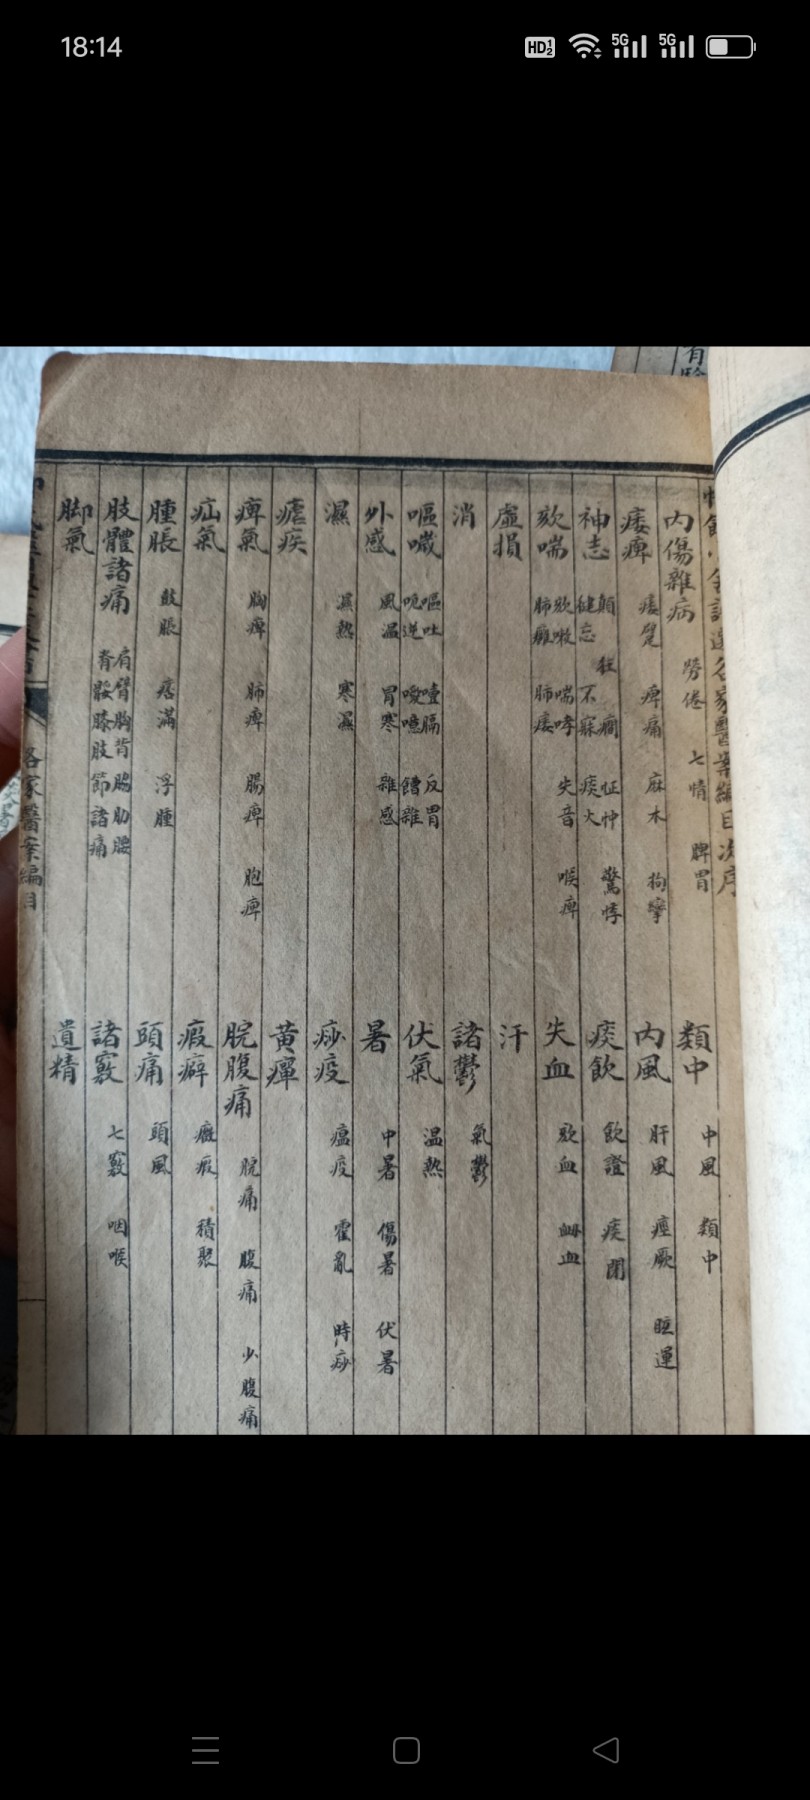 18:14
HD 1 2
5G
5G
有
各家醫案編目次序
內傷雜病 勞倦 七情 脾胃
類中 中風 類中
痿痺 痿躄 痺痛 麻木 拘攣
內風 肝風 痙厥 眩運
神志 顛狂癎 怔忡 驚悸 健忘 不寐 痰火
痰飲 飲證 痰閉
欬喘 欬嗽 喘哮 失音 喉痺 肺癰 肺痿
失血 欬血 衂血
虛損
汗
消
諸鬱 氣鬱
嘔噦 嘔吐 噎膈 反胃 呃逆 噯噫 饐雜
伏氣 温熱
外感 風温 冒寒 雜感
暑 中暑 傷暑 伏暑
濕 濕熱 寒濕
痧疫 瘟疫 霍亂 時痧
瘧疾
黃癉
痺氣 胸痺 肺痺 腸痺 胞痺
脘腹痛 脘痛 腹痛 少腹痛
疝氣
瘕癖 癥瘕 積聚
腫脹 鼓脹 痞滿 浮腫
頭痛 頭風
肢體諸痛 肩臂胸背脇肋腰脊骽膝肢節諸痛
諸竅 七竅 咽喉
脚氣
遺精
各家醫案編目